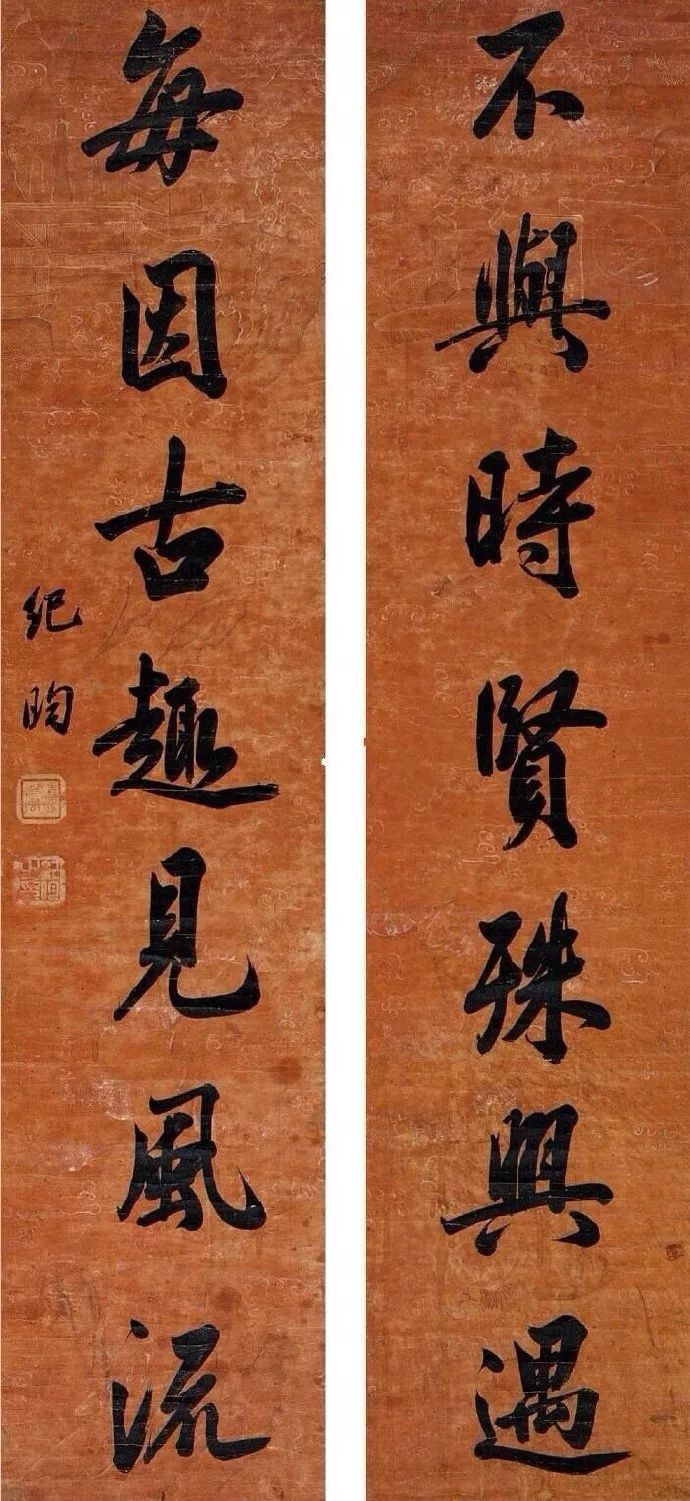 不與時賢殊興遇
每因古趣見風流
紀昀